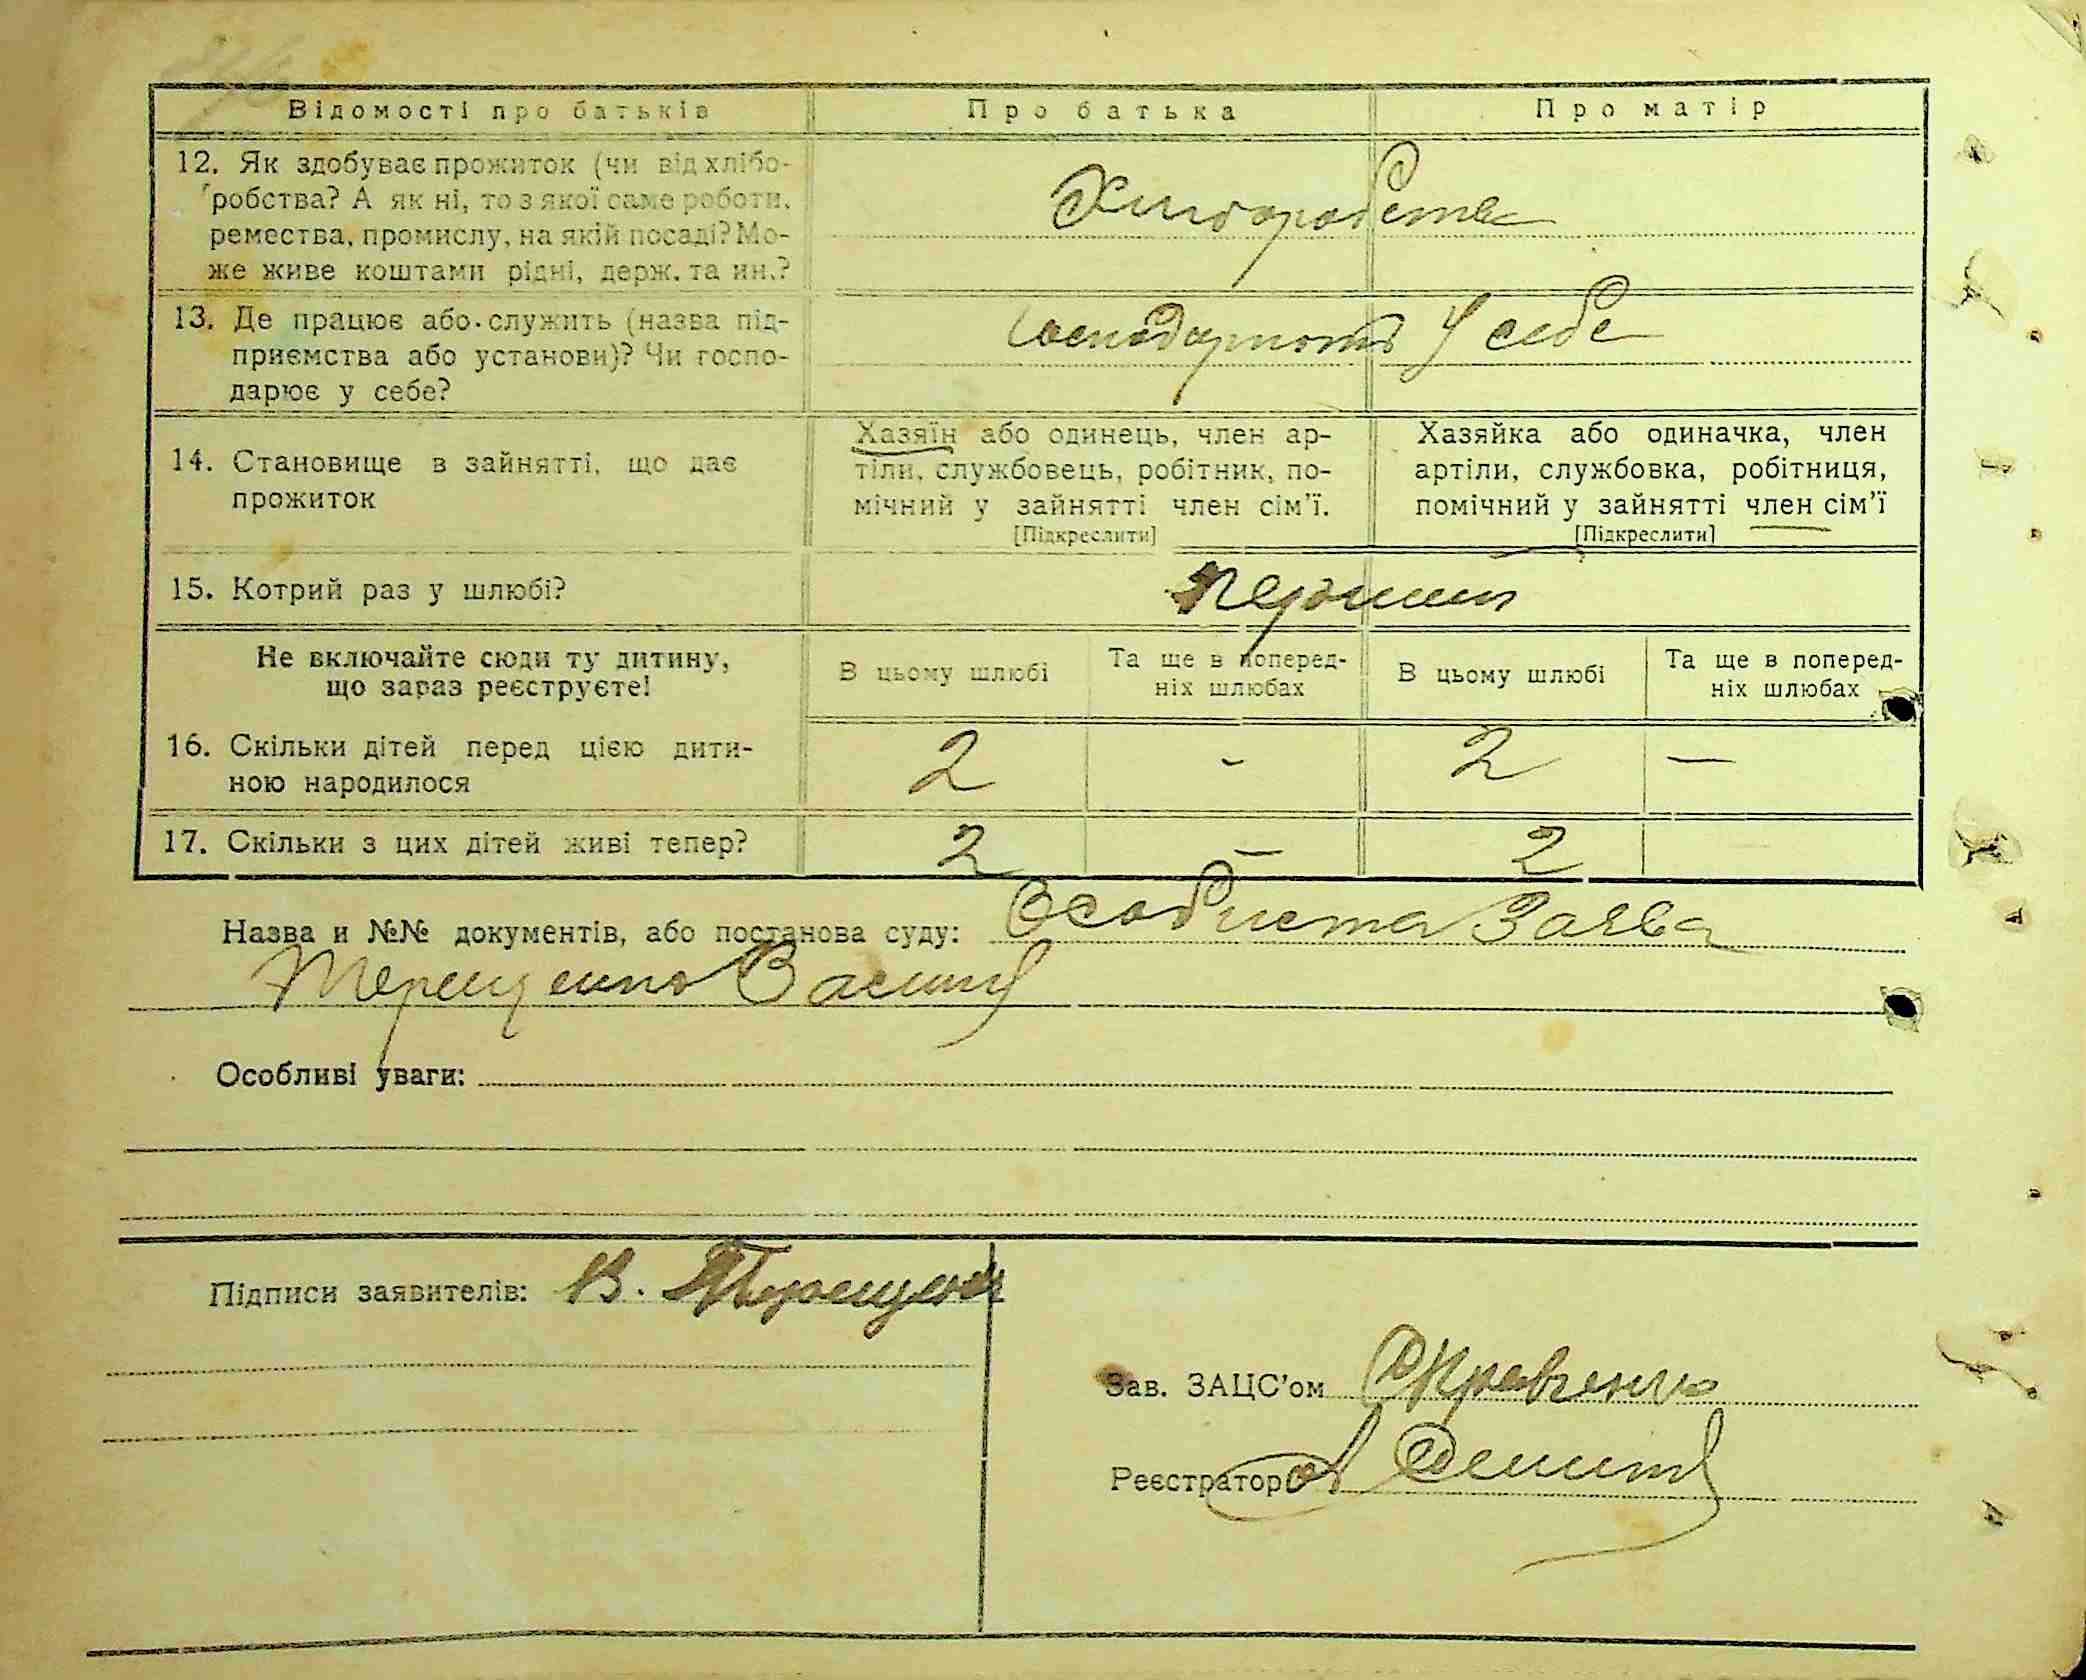 Відомості про батьків Про батька Про матір
12. Як здобуває прожиток (чи від хлібо-
робства? А як ні, то з якої саме роботи,
ремества, промислу, на якій посаді? Мо-
же живе коштами рідні, держ. та ин.?
Хліборобства
13. Де працює або служить (назва під-
приємства або установи)? Чи госпо-
дарює у себе?
Господарюють У себе
14. Становище в зайнятті, що дає
прожиток
Хазяїн або одинець, член ар-
тіли, службовець, робітник, по-
мічний у зайнятті член сім'ї.
[Підкреслити]
Хазяйка або одиначка, член
артіли, службовка, робітниця,
помічний у зайнятті член сім'ї
[Підкреслити]
15. Котрий раз у шлюбі?
Не включайте сюди ту дитину,
що зараз реєструєте!
В цьому шлюбі
Та ще в поперед-
ніх шлюбах
В цьому шлюбі
Та ще в поперед-
ніх шлюбах
16. Скільки дітей перед цією дити-
ною народилося
2 - 2 —
17. Скільки з цих дітей живі тепер?
2 — 2
Назва и №№ документів, або постанова суду: Особиста Заява
Терещенко Василь
Особливі уваги:
Підписи заявителів: В. Терещенко
Зав. ЗАЦС'ом Кравченко
Реєстратор